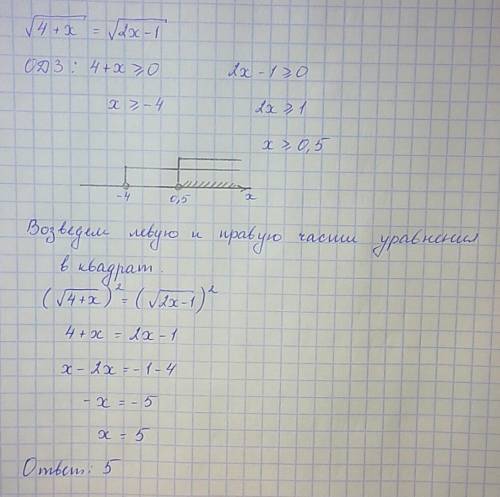 √(4+x) = √(2x-1)
ОДЗ: 4+x ≥ 0    2x-1 ≥ 0
x ≥ -4    2x ≥ 1
x ≥ 0,5
-4    0,5    x
Возведем левую и правую части уравнения
в квадрат.
(√(4+x))² = (√(2x-1))²
4+x = 2x-1
x-2x = -1-4
-x = -5
x = 5
Ответ: 5